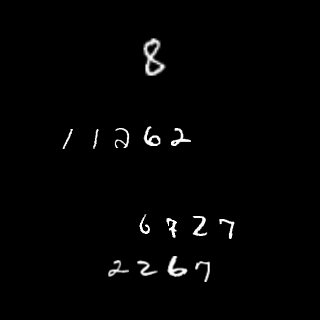 8
11262
6727
2267